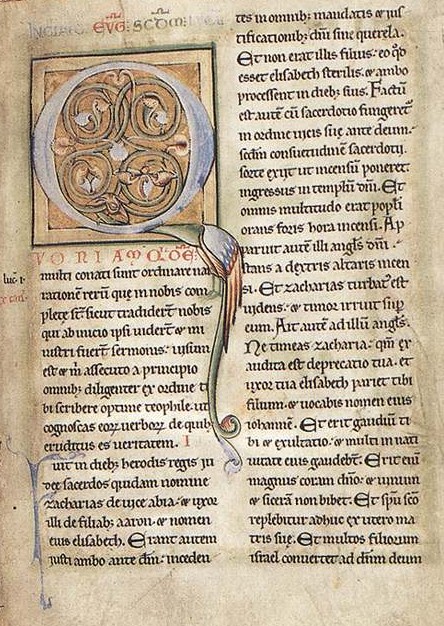 INCIPIT EVG̅. SCDM̅. LVCĀ
Q
VONIAM QDE̅
luc̄ · i ·
multi conati sunt ordinare nar
rationē rerū que in nobis com
plete st̄. sicut tradiderūt nobis
qui ab inicio ipsi viderūt & mi
nistri fuerūt sermonis: uisum
est & m̄ assecuto a principio
omnib; diligenter ex ordine ti
bi scribere optime teophile. ut
cognoscas eoꝝ uerboꝝ de quib;
eruditus es ueritatem. I
Fuit in dieb; herodis regis iu
dee sacerdos quidam nomine
zacharias de uice abia. & uxor
illi de filiab; aaron. & nomen
eius elisabeth. Erant autem
iusti ambo ante dm̄. inceden
tes in omnib; mandatis & ius
tificationib; dn̄i sine querela.
Et non erat illis filius. eo qd̄
esset elisabeth sterilis. & ambo
processent in dieb; suis. Factū
est autē cū sacerdotio fungeret᷑
in ordine uicis sue ante deum.
scdm̄ consuetudinē sacerdotii.
sorte exiit ut incensū poneret.
ingressus in templū dn̄i. Et
omnis multitudo erat popl̄i
orans foris hora incensi. Ap
paruit autē illi angl̄s dn̄i.
stans a dextris altaris incen
si. Et zacharias turbat᷒ est
uidens. & timor irruit sup̄
eum. Ait autē ad illū angl̄s.
Ne timeas zacharia. qm̄ ex
audita est deprecatio tua. et
uxor tua elisabeth pariet tibi
filium. & uocabis nomen eius
iohannē. Et erit gaudiū ti
bi & exultatio. & multi in nati
uitate eius gaudebt̄. Erit eni̅
magnus coram dn̄o. & uinum
& sicerā non bibet. Et spū scō
replebitur adhuc ex utero ma
tris sue. Et multos filiorum
israel conuertet ad dn̄m deum